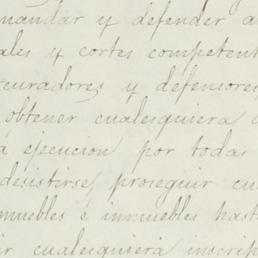 mandar y defender a
ales y cortes competent
curadores y defensores
obtener cualesquiera
á ejecucion por todas
desistirse, proseguir cu
muebles é inmuebles hast
ir cualesquiera inscrip